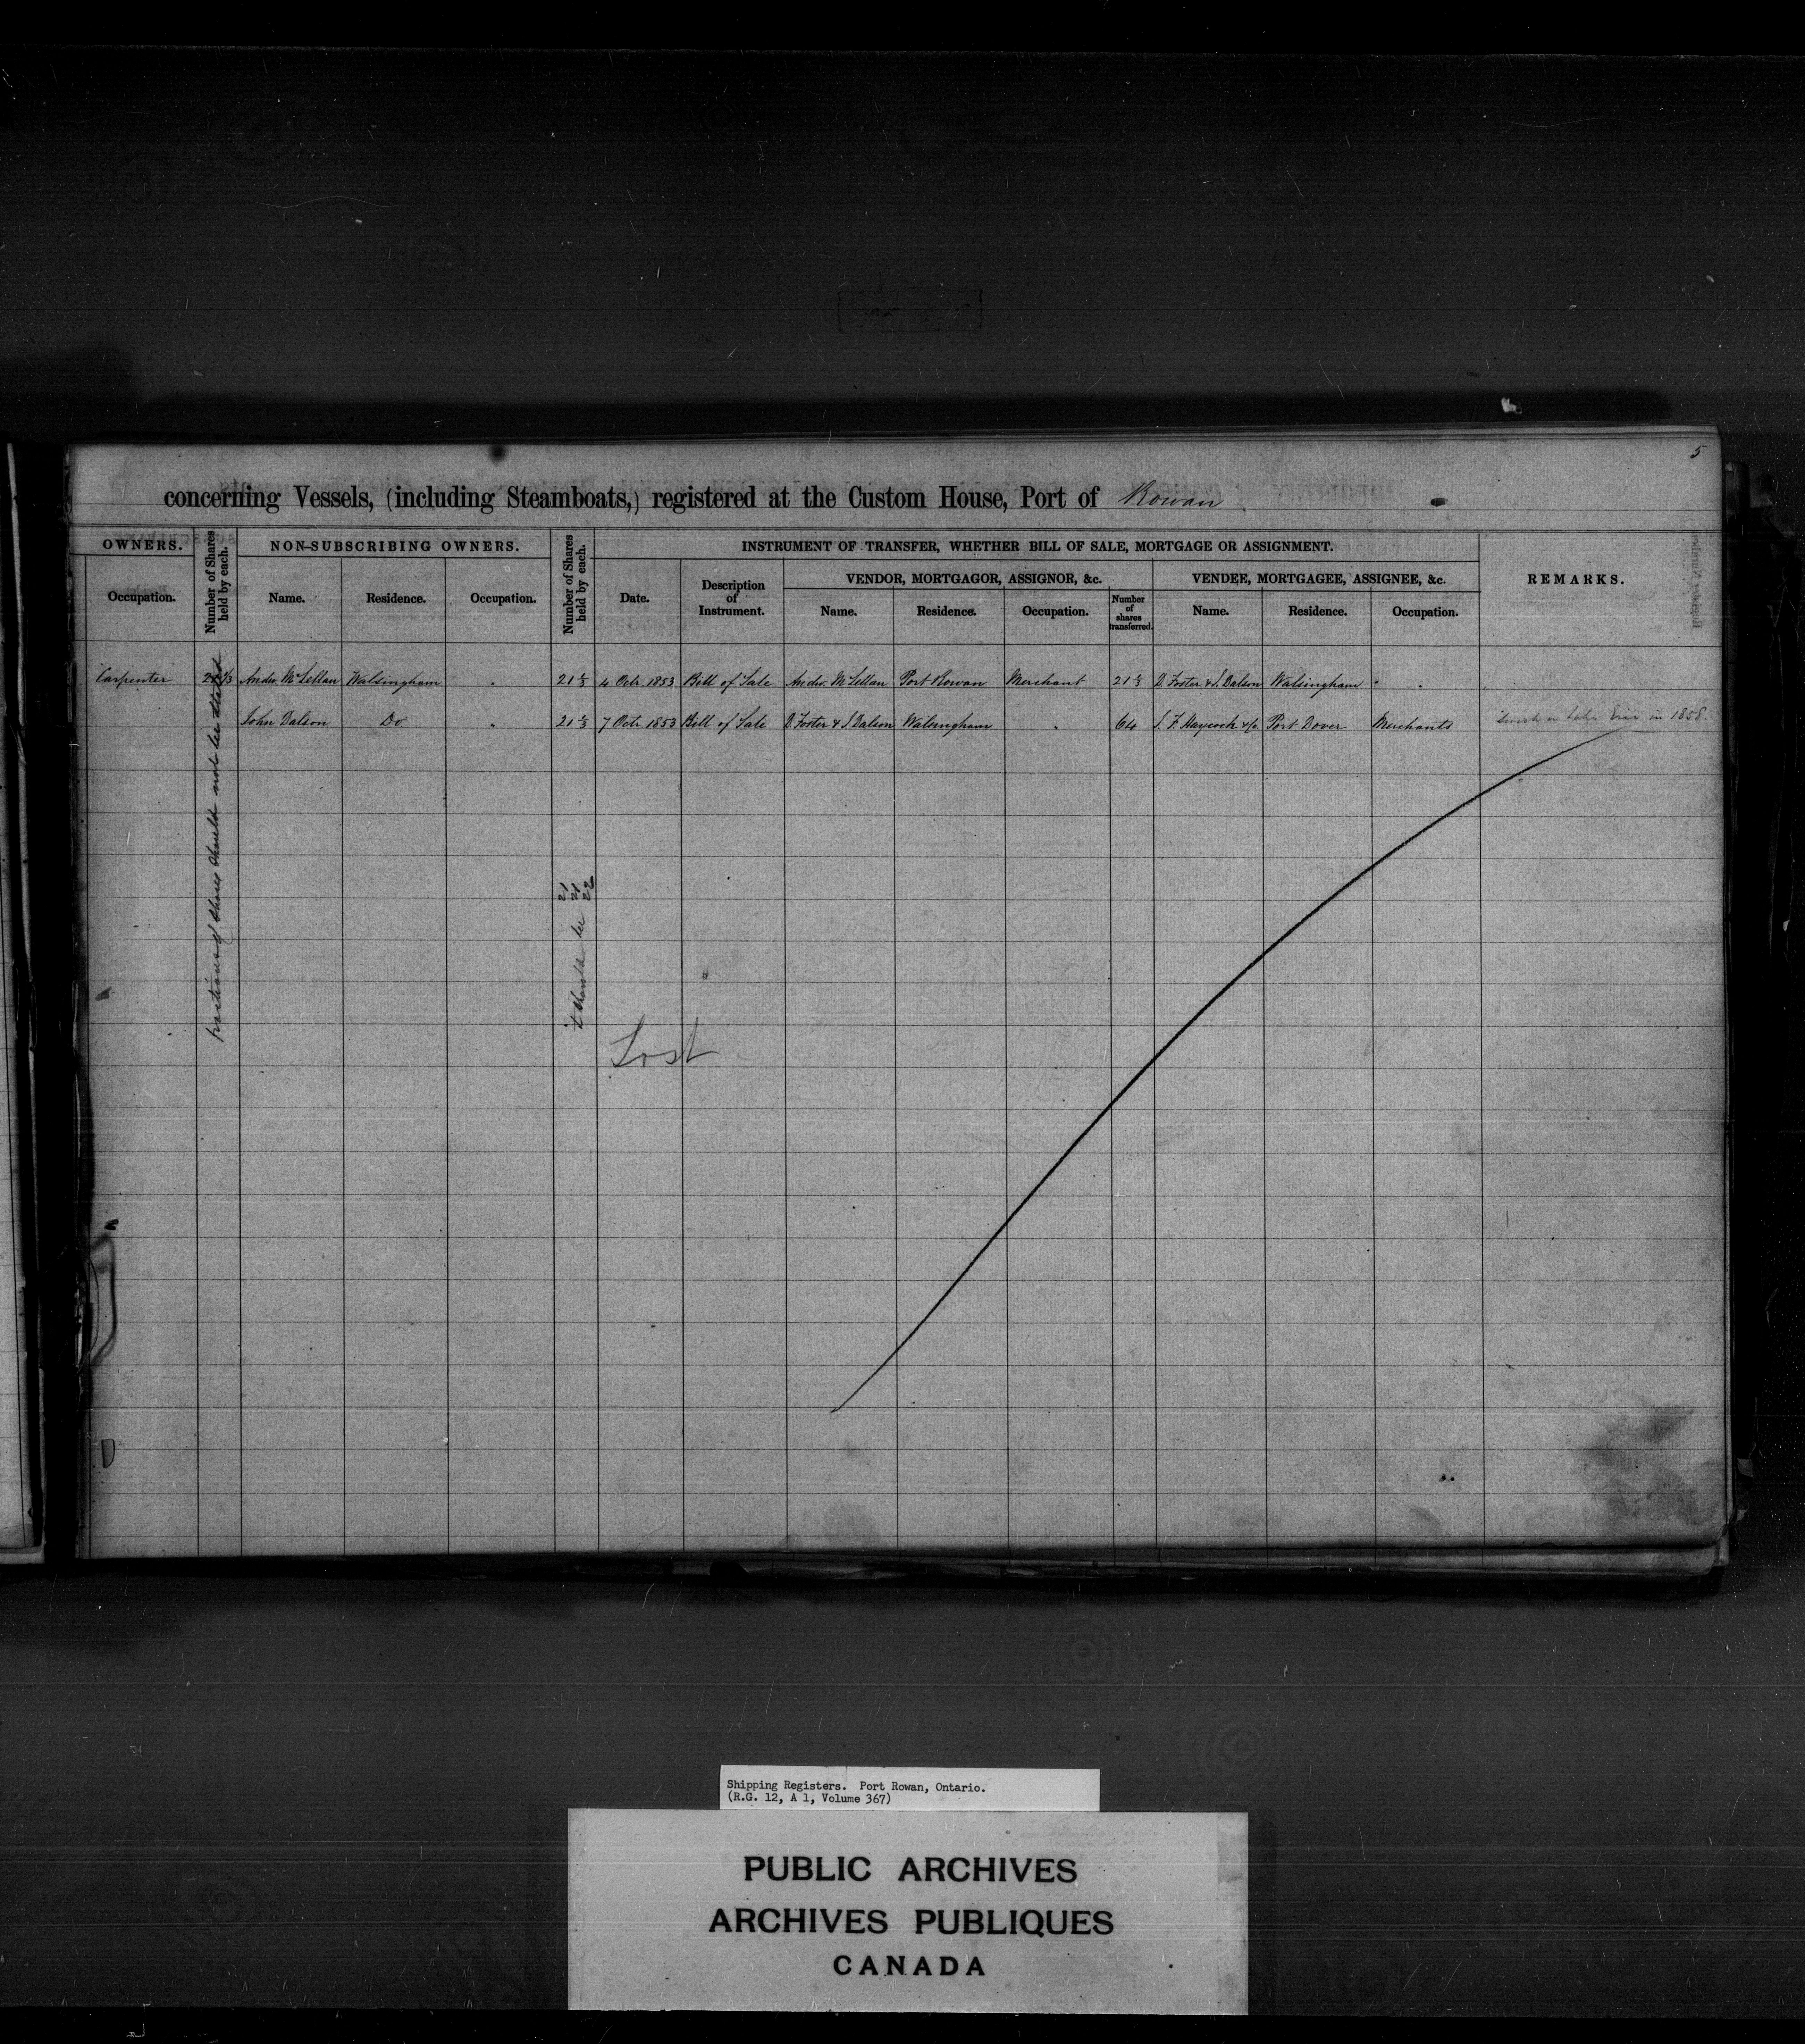 5
concerning Vessels, (including Steamboats,) registered at the Custom House, Port of Rowan
OWNERS.
Occupation.
Number of Shares held by each.
NON-SUBSCRIBING OWNERS.
Name. Residence. Occupation.
Number of Shares held by each.
INSTRUMENT OF TRANSFER, WHETHER BILL OF SALE, MORTGAGE OR ASSIGNMENT.
Date. Description of Instrument.
VENDOR, MORTGAGOR, ASSIGNOR, &c.
Name. Residence. Occupation. Number of shares transferred.
VENDEE, MORTGAGEE, ASSIGNEE, &c.
Name. Residence. Occupation.
REMARKS.
Carpenter 21 1/3 Andw. McLellan Walsingham " 21 1/3 4 Octr. 1853 Bill of Sale Andw. McLellan Port Rowan Merchant 21 1/3 D. Foster & J. Dalson Walsingham " "
John Dalson Do " 21 1/3 7 Octr. 1853 Bill of Sale D. Foster & J. Dalson Walsingham " 64 S. F. Haycock &Co. Port Dover Merchants Sunk in Lake Erie in 1858.
fractions of shares should not be stated
it should be 21
21
22
Lost
Shipping Registers. Port Rowan, Ontario.
(R.G. 12, A 1, Volume 367)
PUBLIC ARCHIVES
ARCHIVES PUBLIQUES
CANADA